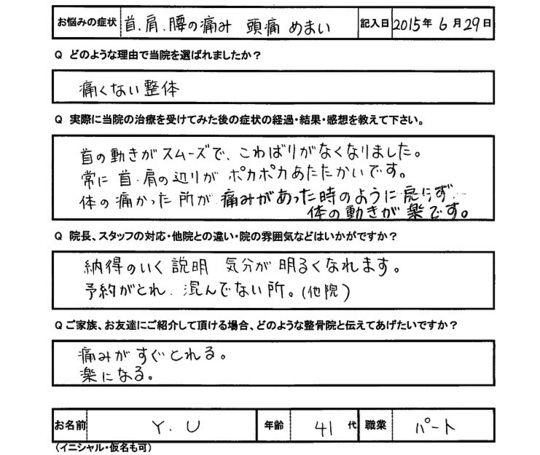 お悩みの症状 首、肩、腰の痛み 頭痛 めまい 記入日 2015年 6月29日
Q どのような理由で当院を選ばれましたか?
痛くない整体
Q 実際に当院の治療を受けてみた後の症状の経過・結果・感想を教えて下さい。
首の動きがスムーズで、こわばりがなくなりました。
常に首・肩の辺りがポカポカあたたかいです。
体の痛かった所が痛みがあった時のように戻らず
体の動きが楽です。
Q 院長、スタッフの対応・他院との違い・院の雰囲気などはいかがですか?
納得のいく説明 気分が明るくなれます。
予約がとれ、混んでない所。(他院)
Qご家族、お友達にご紹介して頂ける場合、どのような整骨院と伝えてあげたいですか?
痛みがすぐとれる。
楽になる。
お名前 Y.U 年齢 41代 職業 パート
(イニシャル・仮名も可)